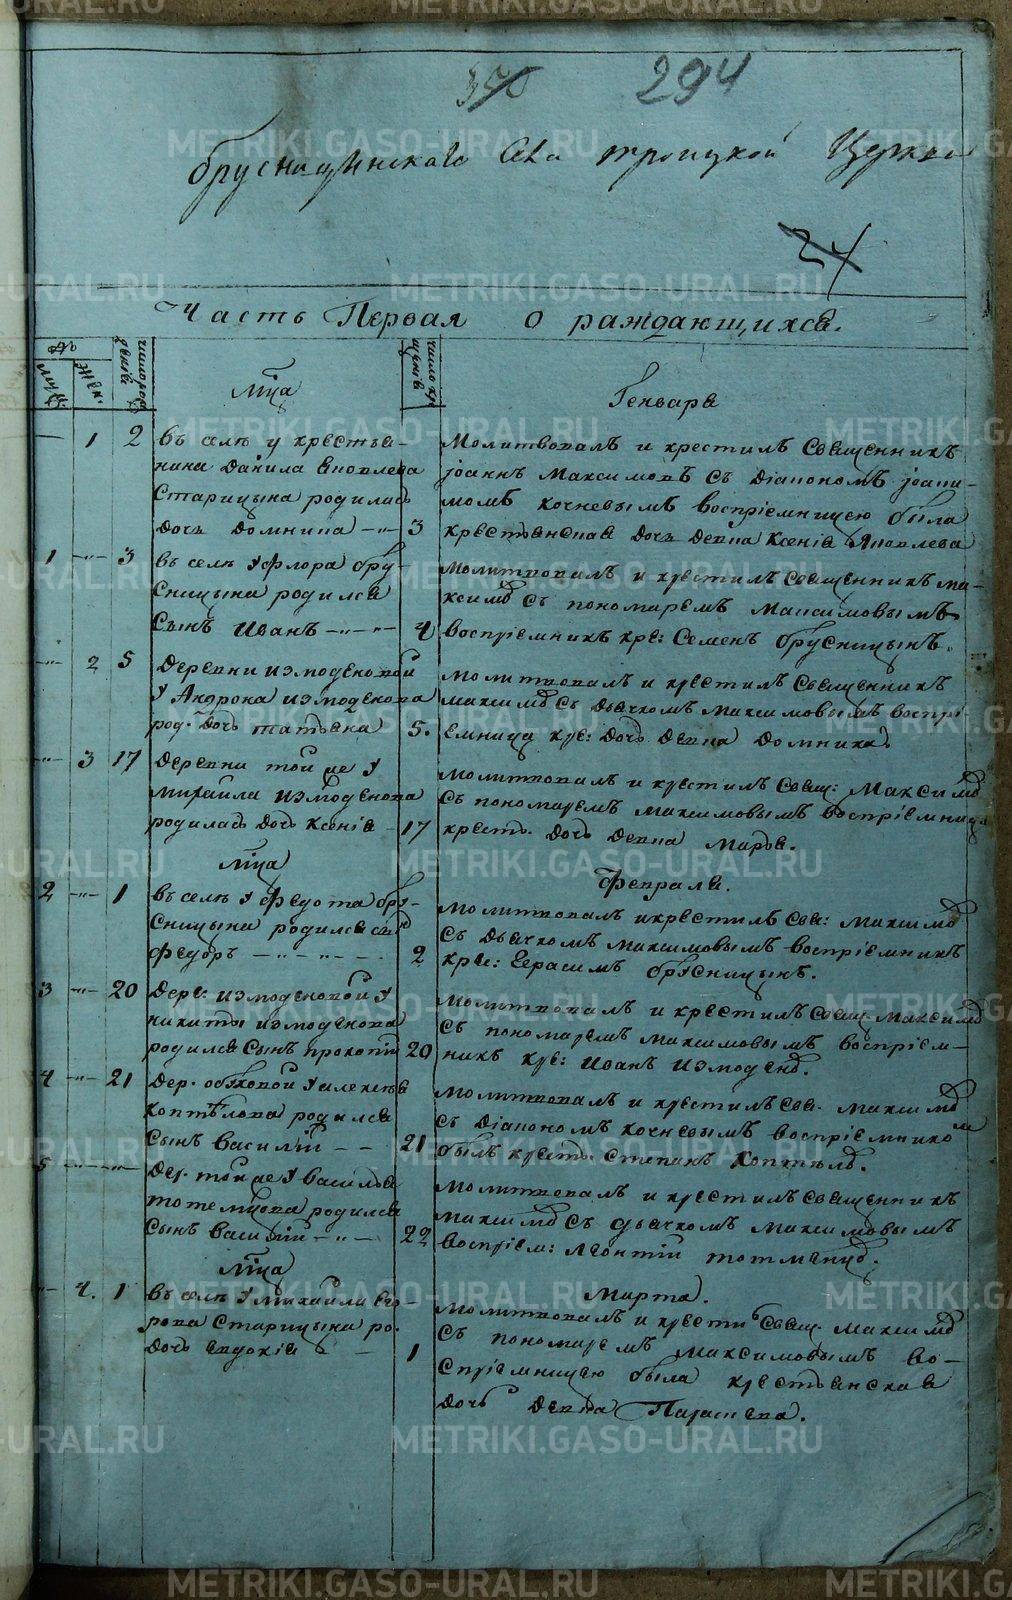 350
294
брусницинского села троицкой Церкви
24
Часть Первая о раждающихся.
№
муж.
жен.
число рождения
мца
число крещения
Генваря
1 2 въ селѣ у крестья-
нина Данила Яковлева
Старицына родилась
дочь Домника 3
Молитвовалъ и крестилъ Священникъ
Іоаннъ Максимовъ съ Діакономъ Іоани-
момъ Кочневымъ воспріемницею была
крестьянская дочь девка Ксенія Яковлева
1 -"- 3 въ селѣ у Флора бру-
сницына родился
сынъ Иванъ -"-"- 4
Молитвовалъ и крестилъ Священникъ ма-
ксимовъ съ пономаремъ Максимовымъ
воспріемникъ кре: Семенъ брусницынъ.
-"- 2 5 Деревни измоденовой
у Андрона измоденова
род. дочь татьяна 5.
молитвовалъ и крестилъ Священникъ
максимовъ съ дьячкомъ максимовымъ воспрі-
емница кре: дочь девка Домника.
-"- 3 17 Деревни той же у
михаила измоденова
родилась дочь Ксенія - 17
молитвовалъ и крестилъ Свящ: Максимовъ
съ пономаремъ максимовымъ воспріемница
кресть. дочь девка Марья.
мца
Февраля.
2 -"- 1 въ селѣ у Федота бру-
сницына родился сынъ
федоръ -"-"- 2
молитвовалъ и крестилъ Свя: Максимовъ
съ дьячкомъ максимовымъ воспріемникъ
кре: Герасимъ брусницынъ.
3 -"- 20 Дере: измоденовой у
никиты измоденова
родился Сынъ прокопій 20
молитвовалъ и крестилъ Свящ. Максимовъ
съ пономаремъ максимовымъ воспріем-
никъ кре: Иванъ Измоденовъ.
4 -"- 21 Дер. обуховой у алексея
Коптѣлова родился
Сынъ Василій - - 21
молитвовалъ и крестилъ Свя. Максимовъ
съ Діакономъ Кочневымъ воспріемникомъ
былъ крест. Степанъ Коптѣловъ.
5 -"- -"- Дер. той же у Василья
тотемцова родился
Сынъ Василій -"- 22
молитвовалъ и крестилъ Священникъ
максимовъ съ дьячкомъ максимовымъ
воспріем: Леонтій
мца
Марта.
-"- 4. 1 въ селѣ у михайла его-
рова Старицына ро.
дочь Евдокія - 1
молитвовалъ и крести Свящ. максимовъ
съ пономаремъ максимовымъ во-
спріемницею была крестьянская
дочь девка Параскева.